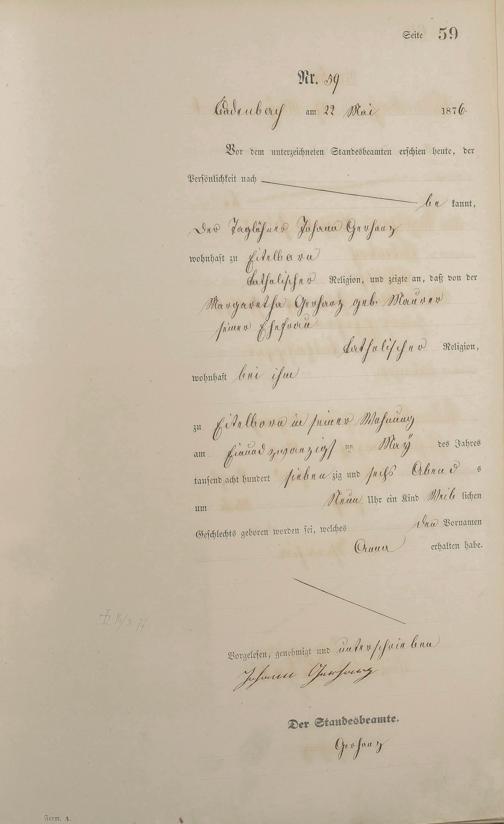 Seite 59
Nr. 59
Cadenbach am 22 Mai 1876.
Vor dem unterzeichneten Standesbeamten erschien heute, der
Persönlichkeit nach
be kannt,
der Taglöhner Johann Gerharz
wohnhaft zu Eitelborn
katholischer Religion, und zeigte an, daß von der
Margaretha Gerharz geb. Maurer
seiner Ehefrau
katholischer Religion,
wohnhaft bei ihm
zu Eitelborn in seiner Wohnung
am Einundzwanzigst en May des Jahres
tausend acht hundert sieben zig und sechs Abend s
um Neun Uhr ein Kind Weib lichen
Geschlechts geboren worden sei, welches den Vornamen
Anna erhalten habe.
Vorgelesen, genehmigt und unterschrieben
Johann Gerharz
Der Standesbeamte.
Gerharz
Form. A.